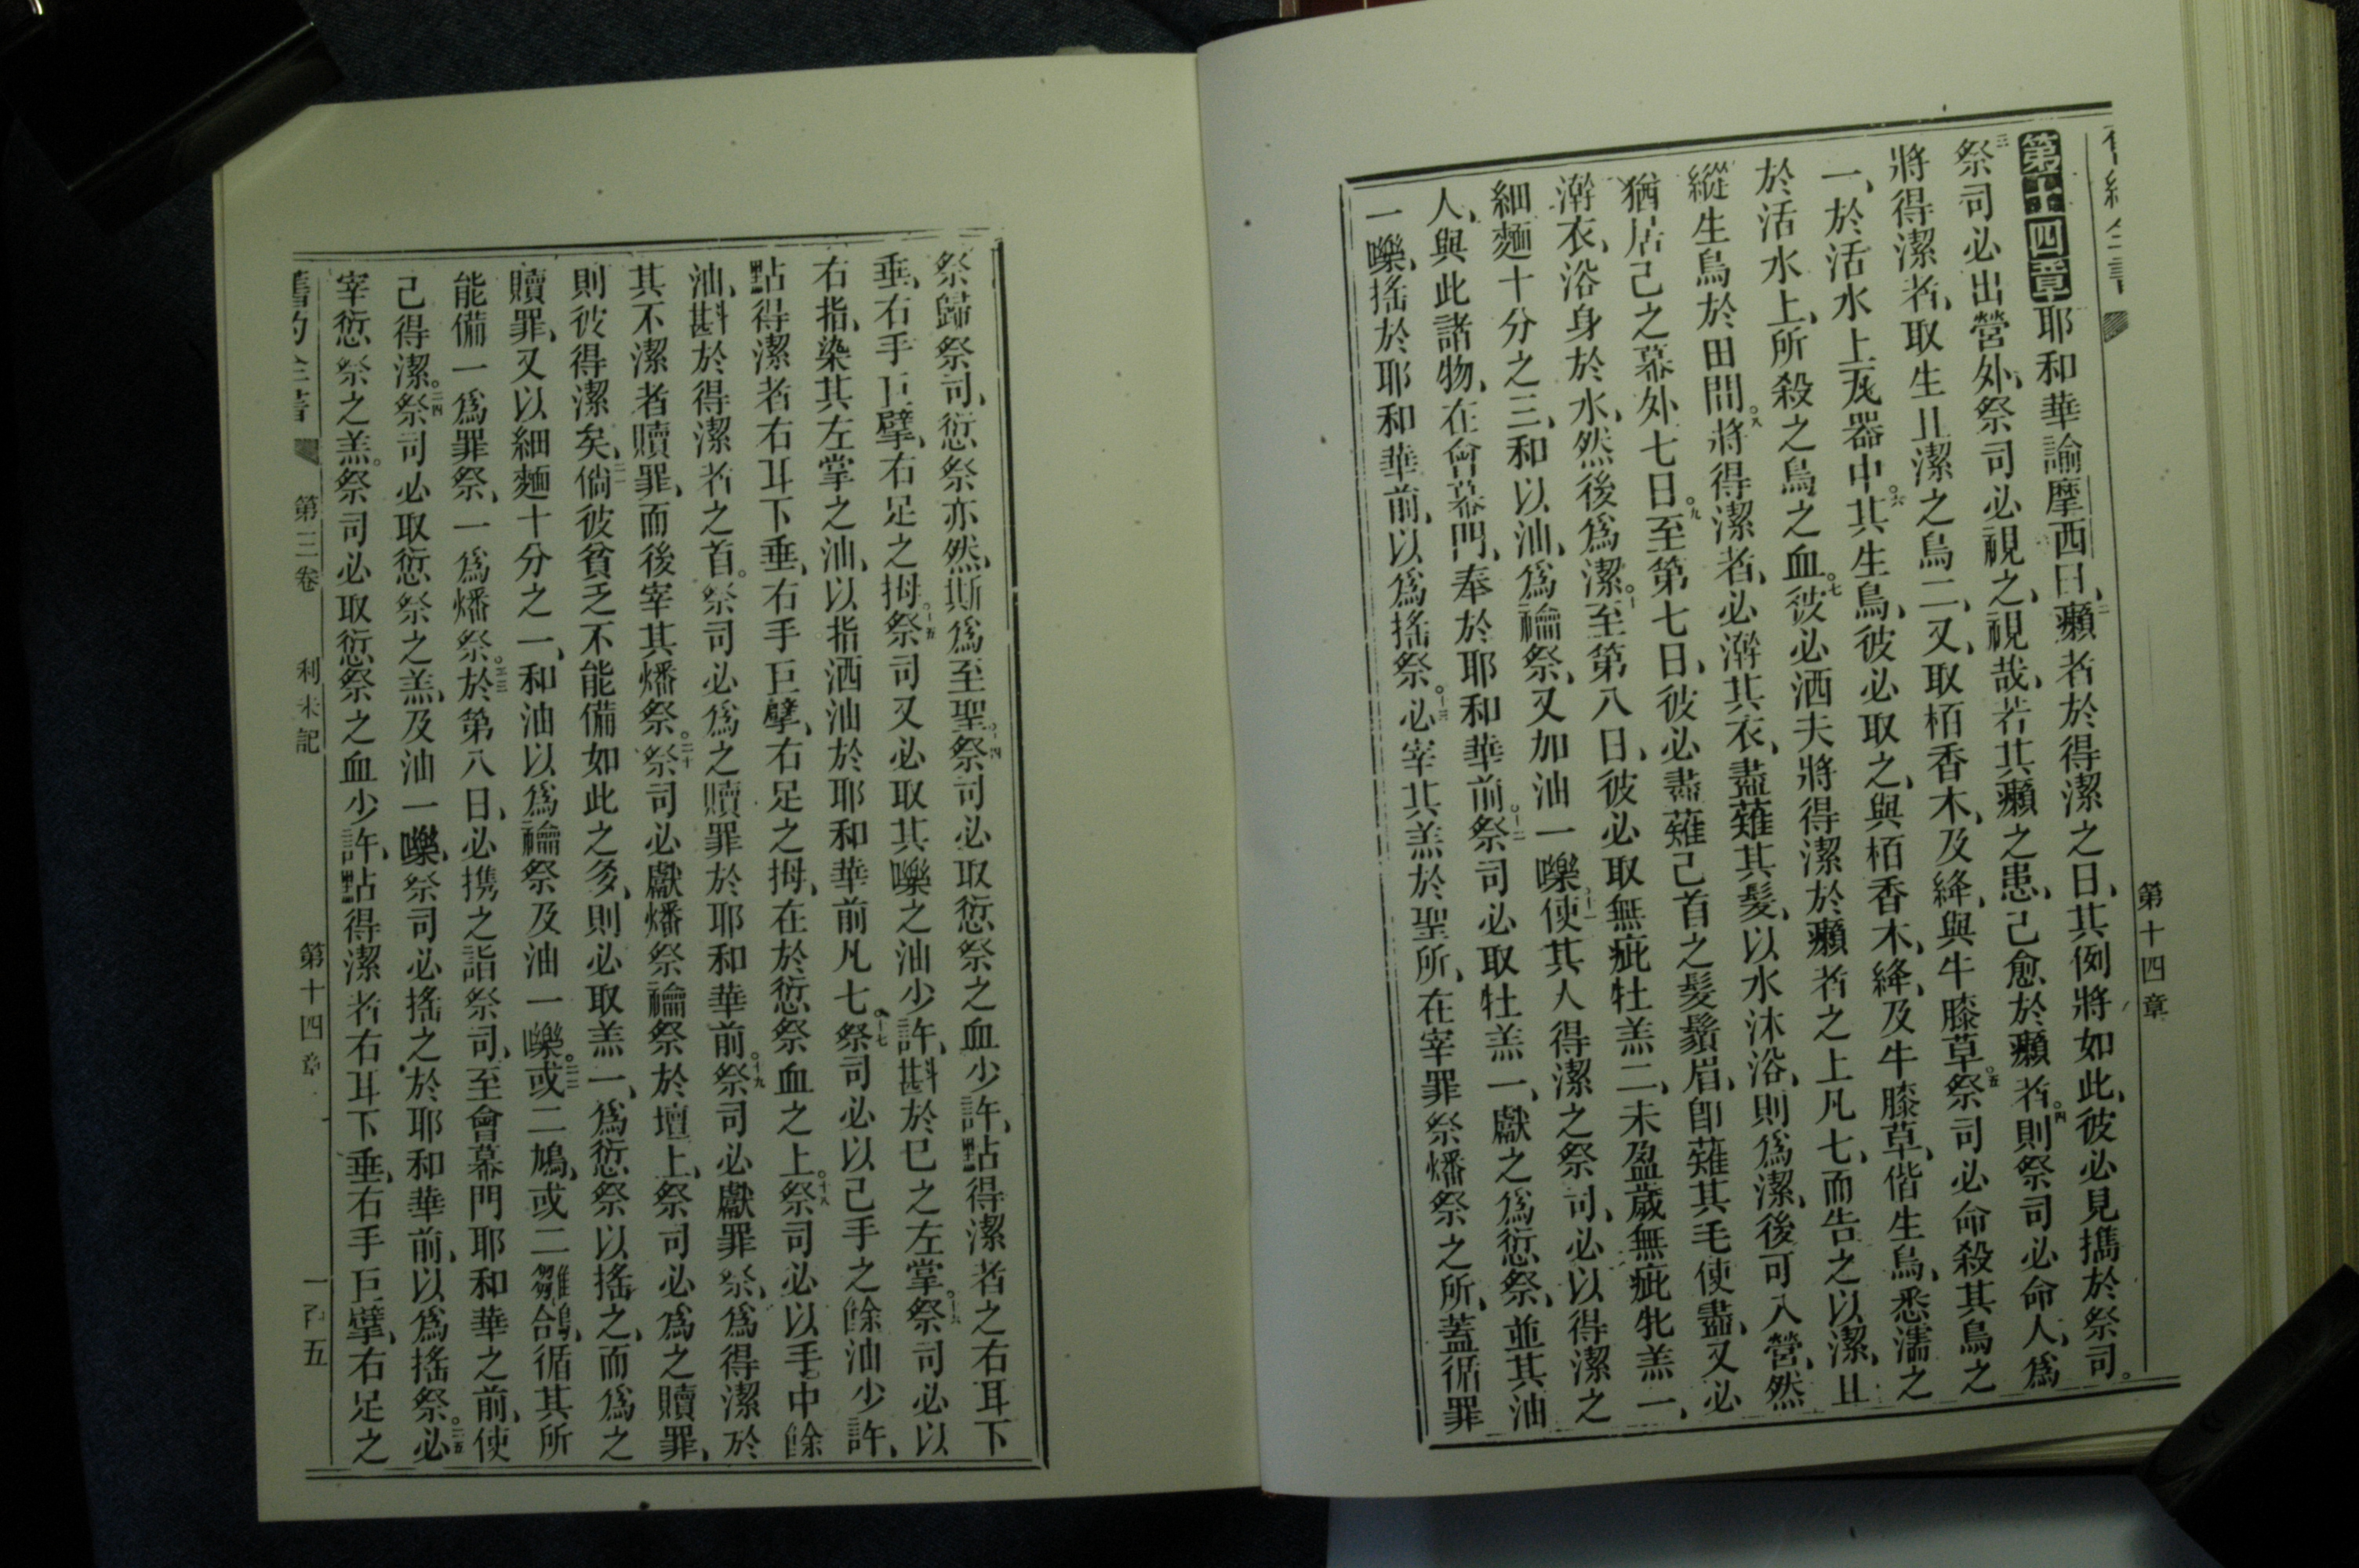 第十四章
第十四章耶和華諭摩西曰、二癩者於得潔之日、其例將如此、彼必見攜於祭司。
三祭司必出營外、祭司必視之、視哉、若其癩之患、己愈於癩者。四則祭司必命人、爲
將得潔者、取生且潔之鳥二、又取栢香木、及絳、與牛膝草。五祭司必命殺其鳥之
一、於活水上瓦器中。六其生鳥、彼必取之、與栢香木、絳、及牛膝草、偕生鳥、悉濡之
於活水上、所殺之鳥之血。七彼必洒夫將得潔於癩者之上凡七、而告之以潔、且
縱生鳥於田間。八將得潔者、必澣其衣、盡薙其髮、以水沐浴、則爲潔、後可入營、然
猶居己之幕外七日。九至第七日、彼必盡薙己首之髮鬚眉、卽薙其毛使盡、又必
澣衣、浴身於水、然後爲潔。十至第八日、彼必取無疵牡羔二、未盈歲無疵牝羔一、
細麵十分之三、和以油、爲禴祭、又加油一嚛。十一使其人得潔之祭司、必以得潔之
人、與此諸物、在會幕門、奉於耶和華前。十二祭司必取牡羔一、獻之爲愆祭、並其油
一嚛、搖於耶和華前、以爲搖祭。十三必宰其羔於聖所、在宰罪祭燔祭之所、蓋循罪
祭歸祭司、愆祭亦然、斯爲至聖。十四祭司必取愆祭之血少許、點得潔者之右耳下
垂、右手巨擘、右足之拇。十五祭司又必取其嚛之油少許、斟於已之左掌。十六祭司必以
右指、染其左掌之油、以指洒油於耶和華前凡七。十七祭司必以己手之餘油少許、
點得潔者右耳下垂、右手巨擘、右足之拇、在於愆祭血之上。十八祭司必以手中餘
油、斟於得潔者之首。祭司必爲之贖罪於耶和華前。十九祭司必獻罪祭、爲得潔於
其不潔者贖罪、而後宰其燔祭。二十祭司必獻燔祭禴祭於壇上、祭司必爲之贖罪、
則彼得潔矣、二一倘彼貧乏不能備如此之多、則必取羔一、爲愆祭以搖之、而爲之
贖罪、又以細麵十分之一、和油以爲禴祭及油一嚛。二二或二鳩、或二雛鴿、循其所
能備一爲罪祭、一爲燔祭。二三於第八日、必攜之詣祭司、至會幕門耶和華之前、使
己得潔。二四祭司必取愆祭之羔、及油一嚛、祭司必搖之於耶和華前、以爲搖祭。二五必
宰愆祭之羔。祭司必取愆祭之血少許、點得潔者右耳下垂、右手巨擘、右足之
舊約全書 第三卷 利未記 第十四章